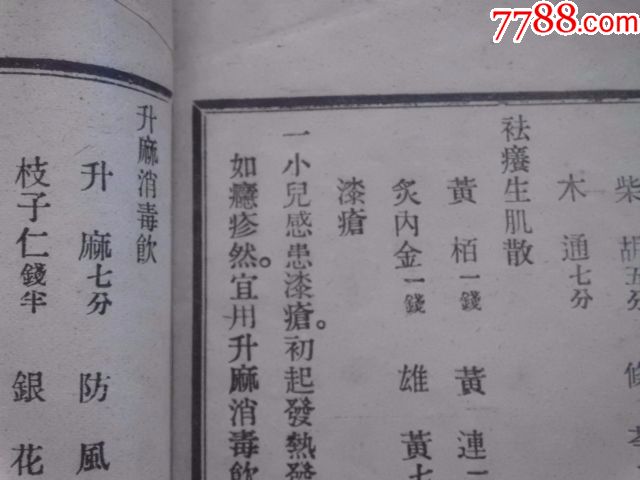 7788.com
柴 胡五分
木 通七分
祛癢生肌散
黃 栢一錢 黃 連
炙內金一錢 雄 黃七
漆瘡
一小兒感患漆瘡。初起發熱發
如癮疹然。宜用升麻消毒飲
升麻消毒飲
升 麻七分 防 風
枝子仁錢半 銀 花